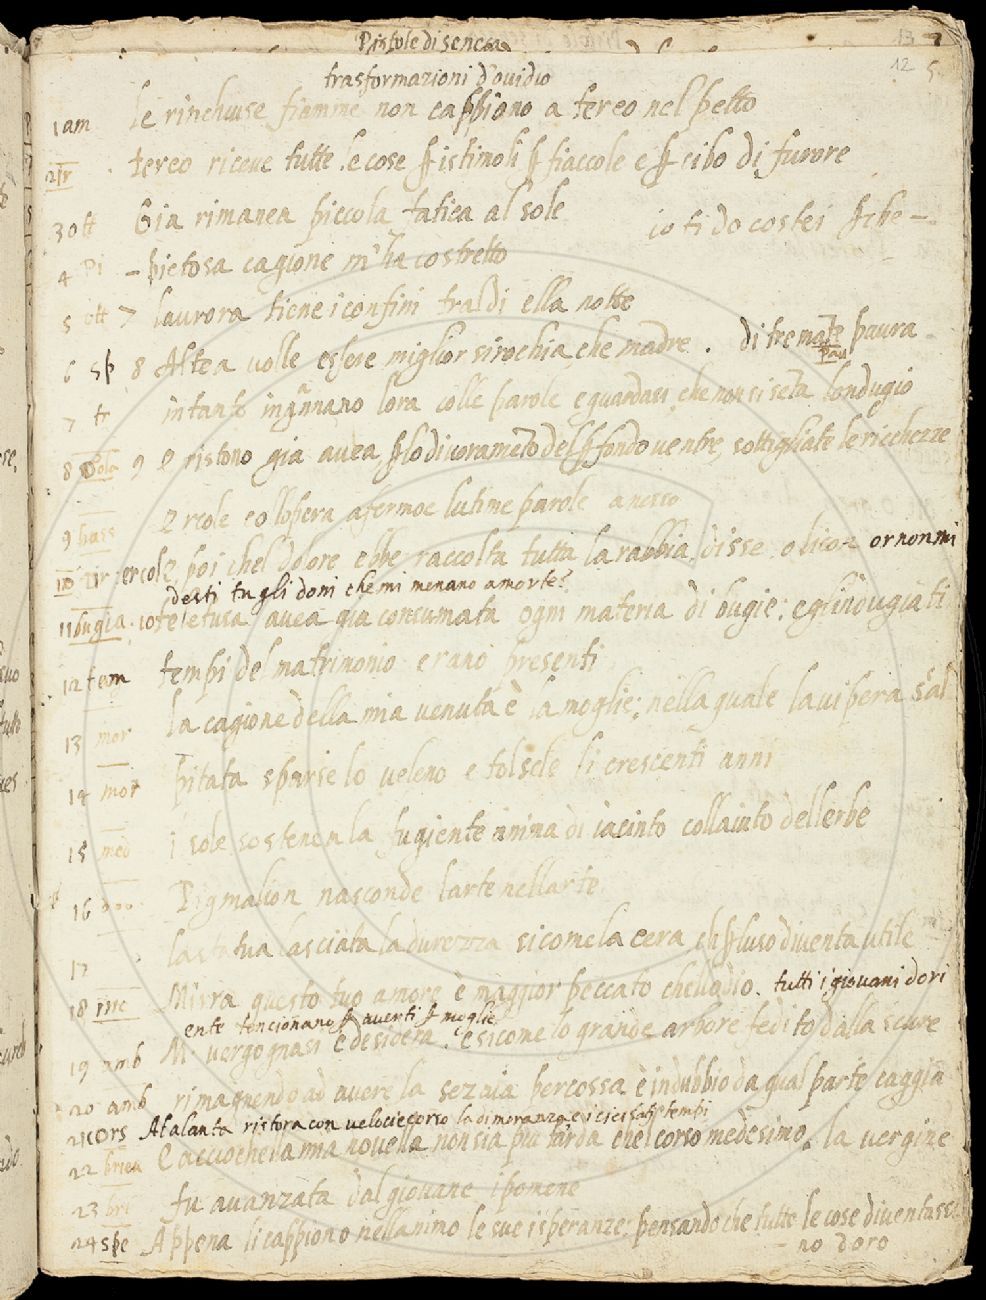 Pistole di seneca
13
12 5
trasformazioni d'ovidio
1 am le rinchiuse fiamme non cappiono a tereo nel petto
2 ir tereo riceve tutte le cose ꝑ istimoli ꝑ fiaccole e ꝑ cibo di furore
3 ott Gia rimanea piccola fatica al sole io ti do costei ꝑche –
4 pi – pietosa cagione m'ha costretto
5 ott 7 laurora tiene i confini tral di ella notte
6 sp 8 Altea volle essere miglior sirochia che madre . di tremate paura
pau
7 tr intanto ingannano lora colle parole e guardasi che non si seta londugio
8 gola 9 e ristono gia avea ꝑ lo divorameto del ꝑfondo ventre sottigliate le ricchezze
9 bass Ercole collopera afermoe lutime parole a nesso
10 ir ercole poi chel dolore ebbe raccolta tutta la rabbia disse o licon or non mi
desti tu gli doni che mi menano a morte?
11 bugia 10 teletusa avea gia consumata ogni materia di bugie: e gl'indugiati
12 tem tempi del matrimonio erano presenti
13 mor la cagione della mia venuta è la moglie: nella quale la vipera scal
14 mor pitata sparse lo veleno e tolsele li crescenti anni
15 med i sole sostenea la fugiente anima di iacinto collaiuto dellerbe
16 Pigmalion nasconde larte nellarte
17 la statua lasciata la durezza sicome la cera ch ꝑ luso diventa utile
18 inc Mirra questo tuo amore è maggior peccato chellodio. tutti i giovani dori
ente tencionano ꝑ averti ꝑ moglie
19 amb M. vergognasi e desidera. e sicome lo grande arbore fedito dalla scure
20 amb rimagnendo ad avere la sezaia percossa è in dubbio da qual parte caggia
21 cors Atalanta ristora con veloce corso la dimoranza e i tempi
22 brieu E accioche la mia novella non sia piu tarda chel corso medesimo. la vergine
23 bri fu avanzata dal giovane ipomene
24 spe Appena li cappiono nellanimo le sue isperanze: pensando che tutte le cose diventasse
no d'oro